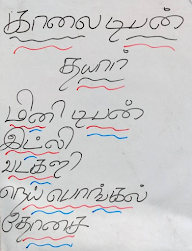 காலை டிபன்
தயார்
மினி டிபன்
இட்லி
வடகறி
நெய் பொங்கல்
தோசை